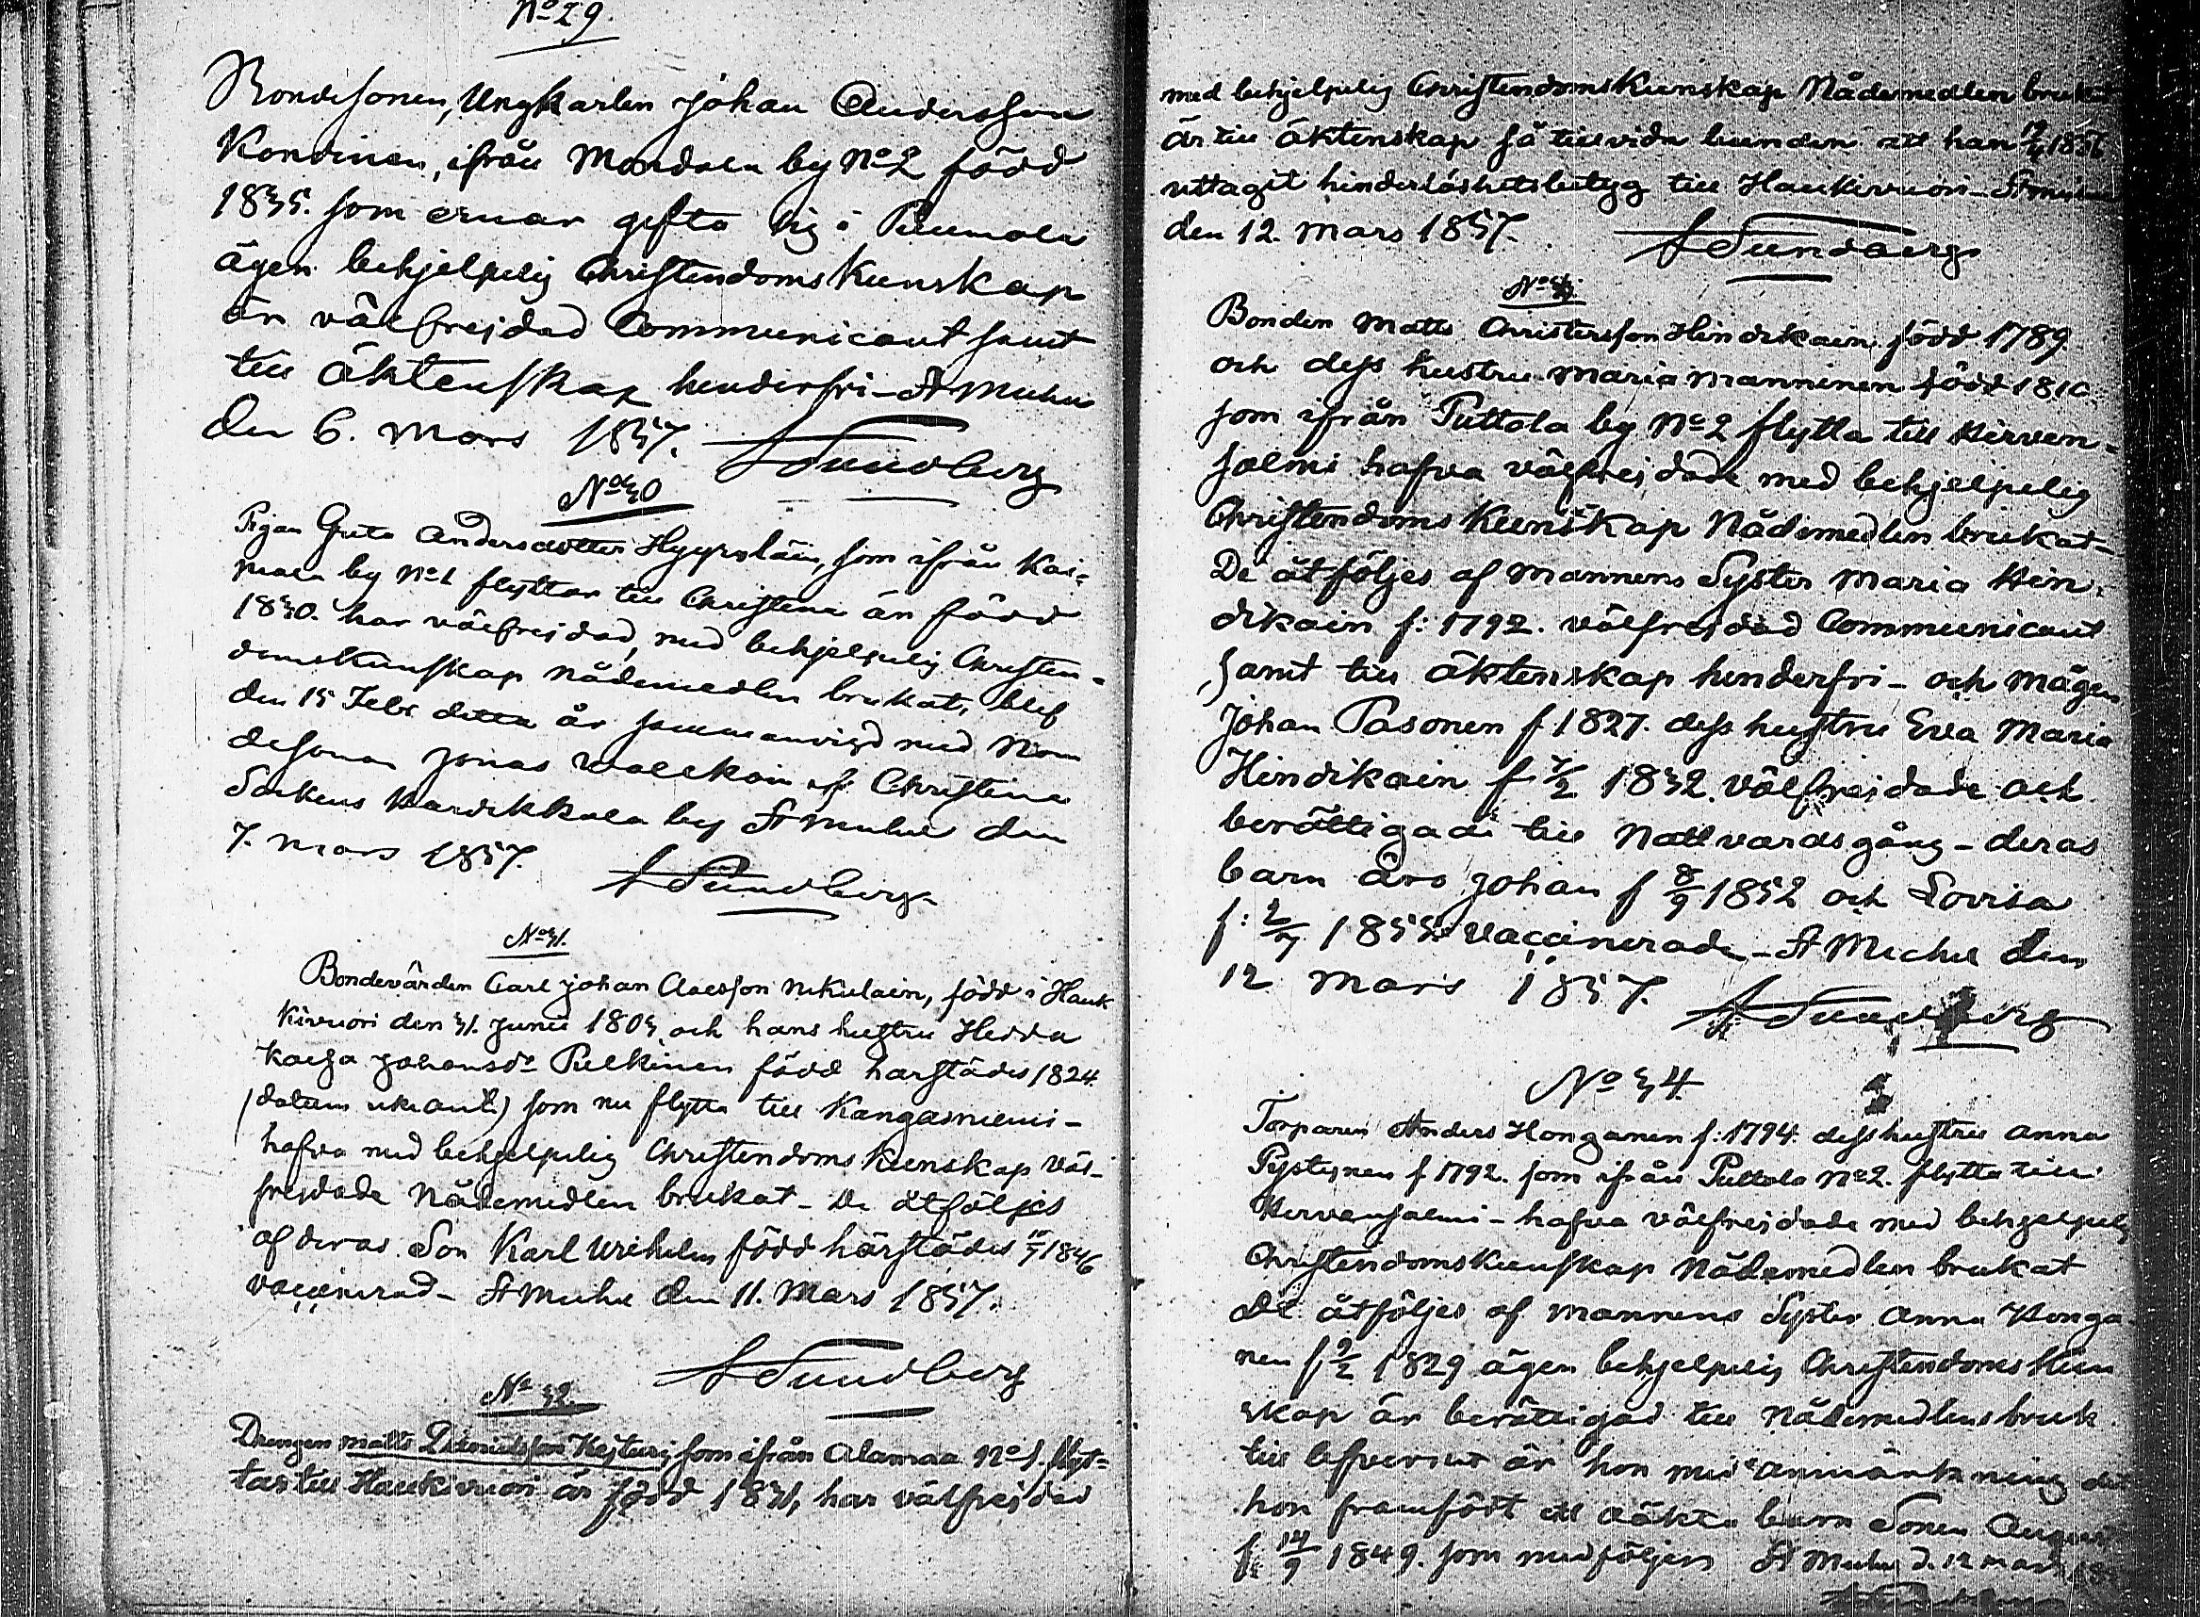 No 29.
Bondesonen, Ungkarlen Johan Andersson
Konoinen, ifrån Mondola by No 2 född
1835. som ernar gifta sig i Puumala
äger behjelpelig Christendoms Kunskap
är välfrejdad Communicant samt
till äktenskap hinderfri - St Michel
den 6. Mars 1857. A Sundberg
No 30
Pigan Greta Andersdotter Hyyryläin, som ifrån Kai-
mala by No 1 flyttar till Christina är född
1830. har välfrejdad, med behjelpelig Christen-
domskunskap nådemedlen brukat, blef
den 15 Febr detta år sammanvigd med Bon
desonen Jonas Wallkain ifr Christina
Sockens Karikkala by St Michel den
7. Mars 1857. A Sundberg
No 31.
Bondevärden Carl Johan Claesson Nikulain, född i Hauk
kivuori den 31. Junii 1803 och hans hustru Hedda
Kaisa Johansdr Pulkinen född härstädes 1824.
(datum okändt) som nu flytta till Kangasniemi -
hafva med behjelpelig Christendoms Kunskap väl-
frejdade Nådemedlen brukat - De åtföljes
af deras Son Karl Wilhelm född härstädes 10/7 1846
vaccinerad - St Michel den 11. Mars 1857.
A Sundberg
No 32.
Drengen Matts Danielsson Kejturi, som ifrån Alamaa No 1. flyt-
tar till Haukivuori är född 1831, har välfrejdad
med behjelpelig Christendoms Kunskap Nådemedlen brukat
är till äktenskap så tillvida bunden att han 12/4 1856
uttagit hinderlöshetsbetyg till Haukivuori - St Michel
den 12. Mars 1857. A Sundberg
No 33.
Bonden Matts Christersson Hindikain född 1789
och dess hustru Maria Manninen född 1810.
som ifrån Puttola by No 2 flytta till Hirven-
salmi hafva välfrejdade med behjelpelig
Christendoms Kunskap Nådemedlen brukat -
De åtföljes af Mannens Syster Maria Hin-
dikain f: 1792. välfrejdad Communicant
samt till äktenskap hinderfri - och mågen
Johan Pasonen f 1827. dess hustru Eva Maria
Hindikain f 7/2 1832. välfrejdade och
berättigade till Nattvardsgång - deras
barn äro Johan f 8/9 1852 och Lovisa
f: 2/7 1855 vaccinerade - St Michel den
12 Mars 1857. A Sundberg
No 34.
Torparen Anders Honganen f: 1794. dess hustru Anna
Pystynen f 1792. som ifrån Puttola No 2. flytta till
Hirvensalmi - hafva välfrejdade med behjelpelig
Christendomskunskap Nådemedlen brukat
De åtföljes af Mannens Syster Anna Honga
nen f 2/2 1829 äger behjelpelig Christendoms Kun
skap är berättigad till Nådemedlens bruk
till lefvernet är hon med anmärkning då
hon framfödt ett oäkta barn Sonen August
f: 14/9 1849. som medföljer St Michel d. 12 mars